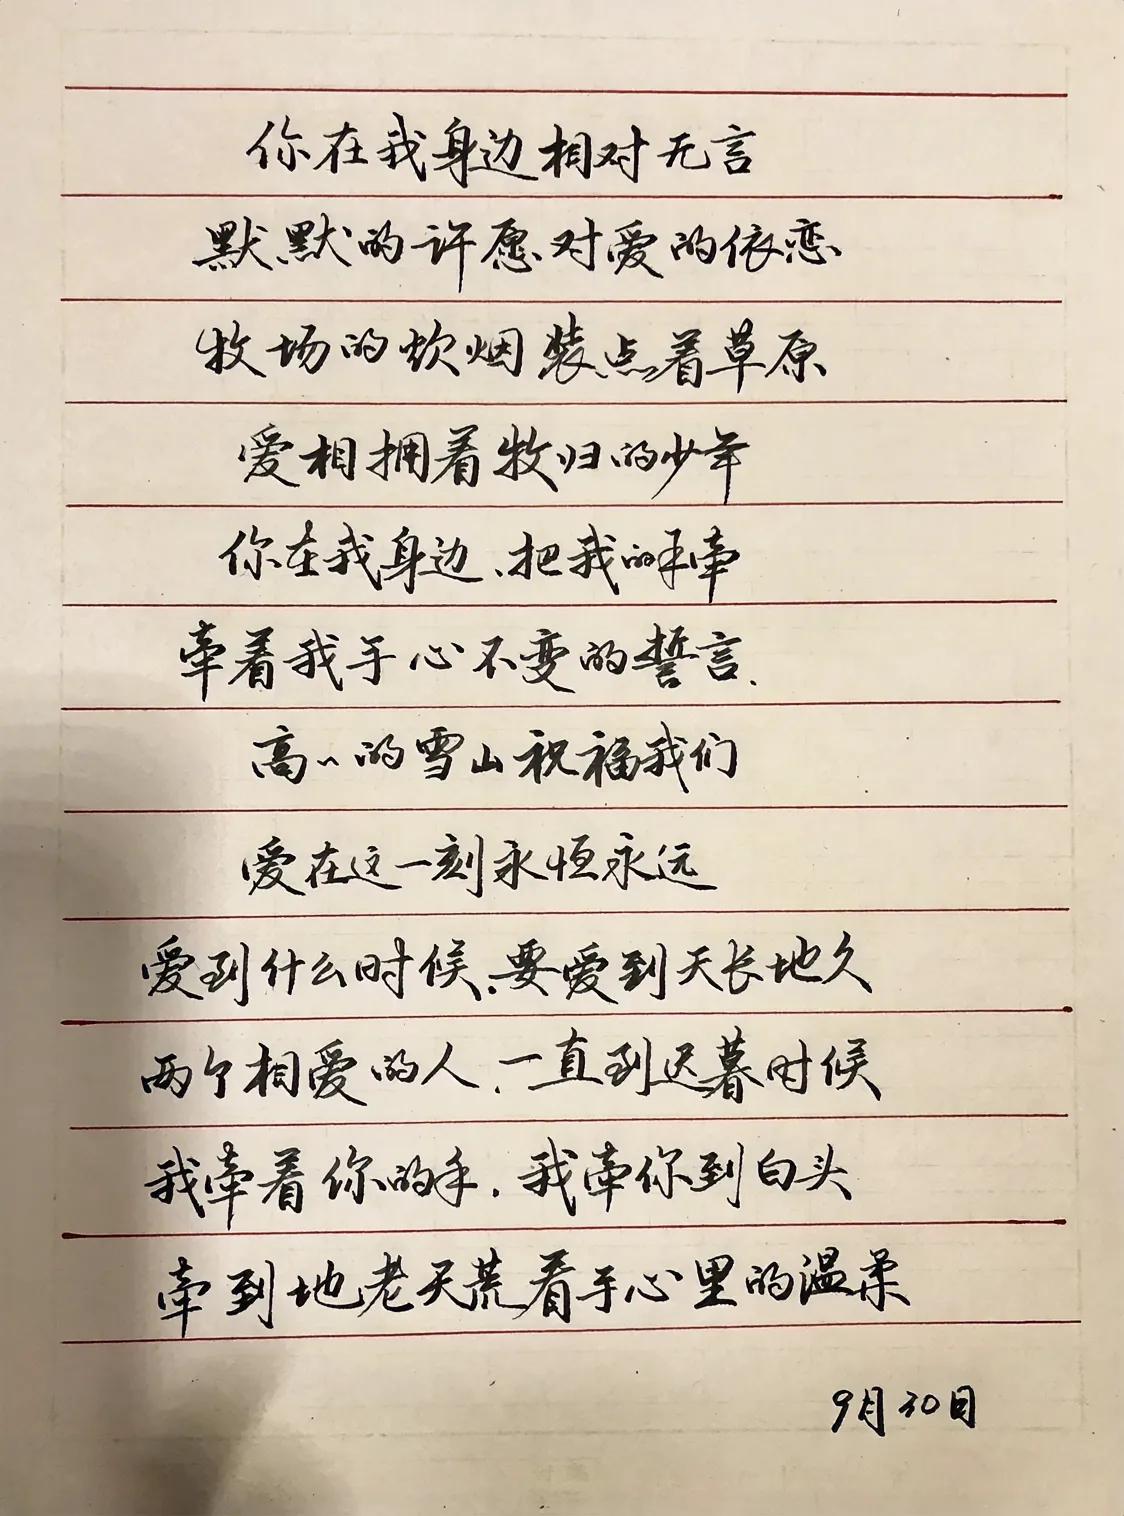 你在我身边相对无言
默默的许愿对爱的依恋
牧场的炊烟装点着草原
爱相拥着牧归的少年
你在我身边、把我的手牵
牵着我手心不变的誓言.
高〃的雪山祝福我们
爱在这一刻永恒永远
爱到什么时候、要爱到天长地久
两个相爱的人、一直到迟暮时候
我牵着你的手、我牵你到白头
牵到地老天荒看手心里的温柔
9月30日